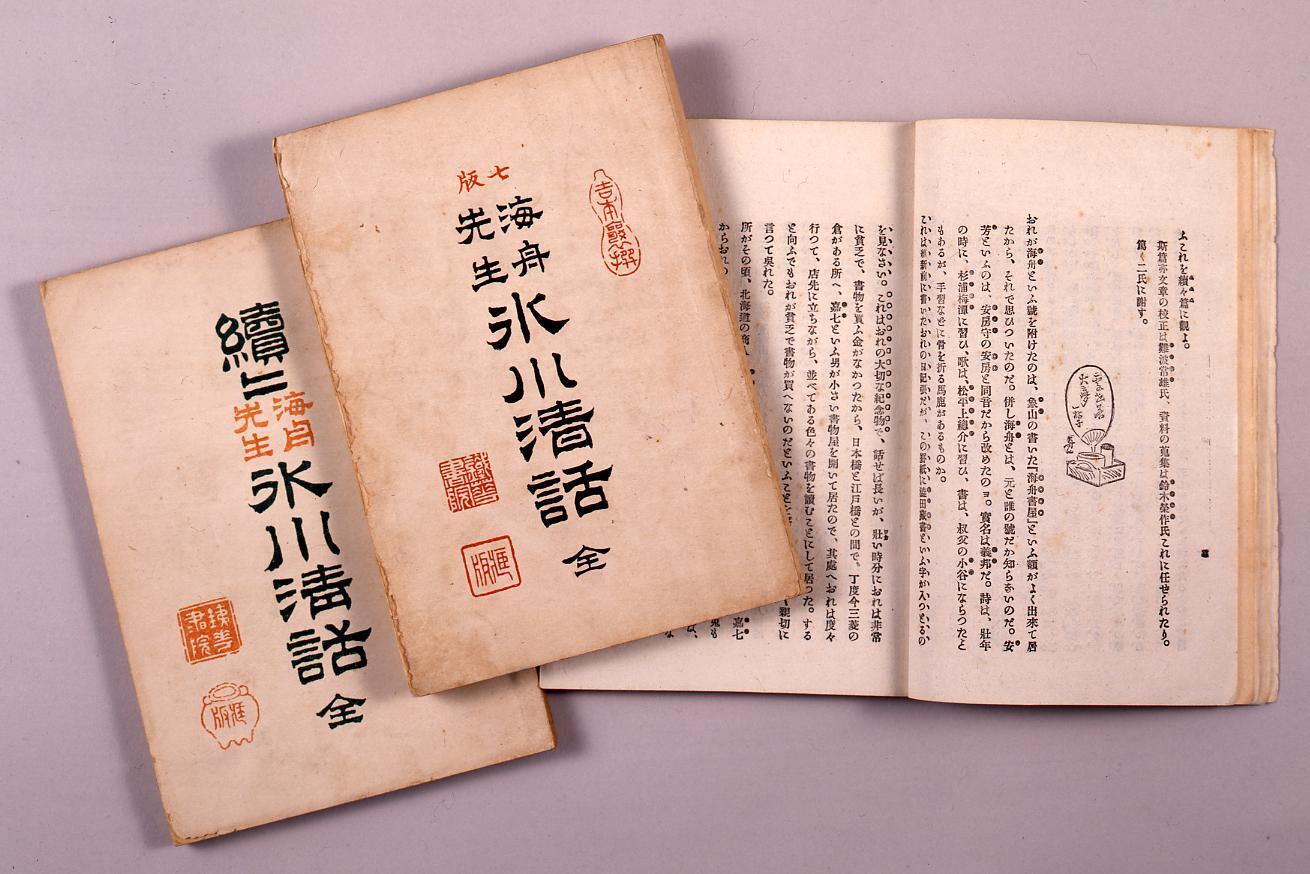 續々
海舟
先生
氷川清話
全
鐵華
書院
版
七
版
海舟
先生
氷川清話
全
吉本襄撰
鐵華
書院
版
ふこれを續々篇に觀よ。
斯篇亦文章の校正は難波常雄氏、資料の蒐集は鈴木榮作氏これに任せられたり。
篇く二氏に謝す。
おれが海舟といふ號を附けたのは、象山の書いた『海舟書屋』といふ額がよく出來て居
たから、それで思ひついたのだ。併し海舟とは、元と誰の號だか知らないのだ。安
芳といふのは、安房守の安房と同音だから改めたのョ。實名は義邦だ。詩は、壯年
の時に、杉浦梅潭に習ひ、歌は、松平上總介に習ひ、書は、叔父の小谷にならつたと
もあるが、手習などに骨を折る馬鹿があるものか。
これは維新前に書いたおれの日記帳だが、この罫紙に益田藏書といふ字が入つとるの
を見なさい。これはおれの大切な紀念物で、話せば長いが、壯い時分におれは非常
に貧乏で、書物を買ふ金がなかつたから、日本橋と江戸橋との間で、丁度今三菱の
倉がある所へ、嘉七といふ男が小さい書物屋を開いて居たので、其處へおれは度々
行つて、店先に立ちながら、並べてある色々の書物を讀むことにして居つた。する
と向ふでもおれが貧乏で書物が買へないのだといふことを
親切に
言つて呉れた。
所がその頃、北海道の商人
嘉七
からおれの